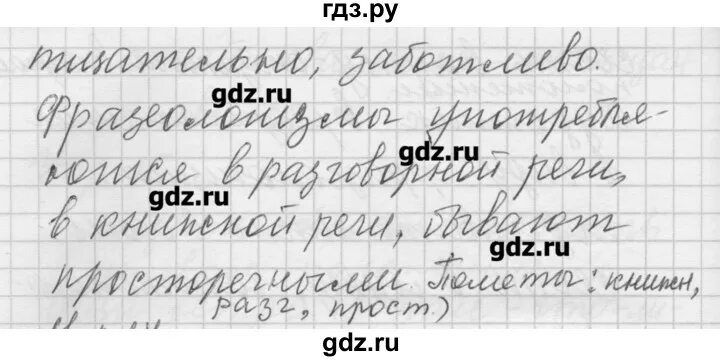 гдз.ру
тщательно, заботливо.
gdz.ru
Фразеологизмы употребля-
gdz.ru
ются в разговорной речи,
gdz.ru
в книжной речи, бывают
gdz.ru
просторечными. Пометы: книжн,
разг, прост.)
gdz.ru